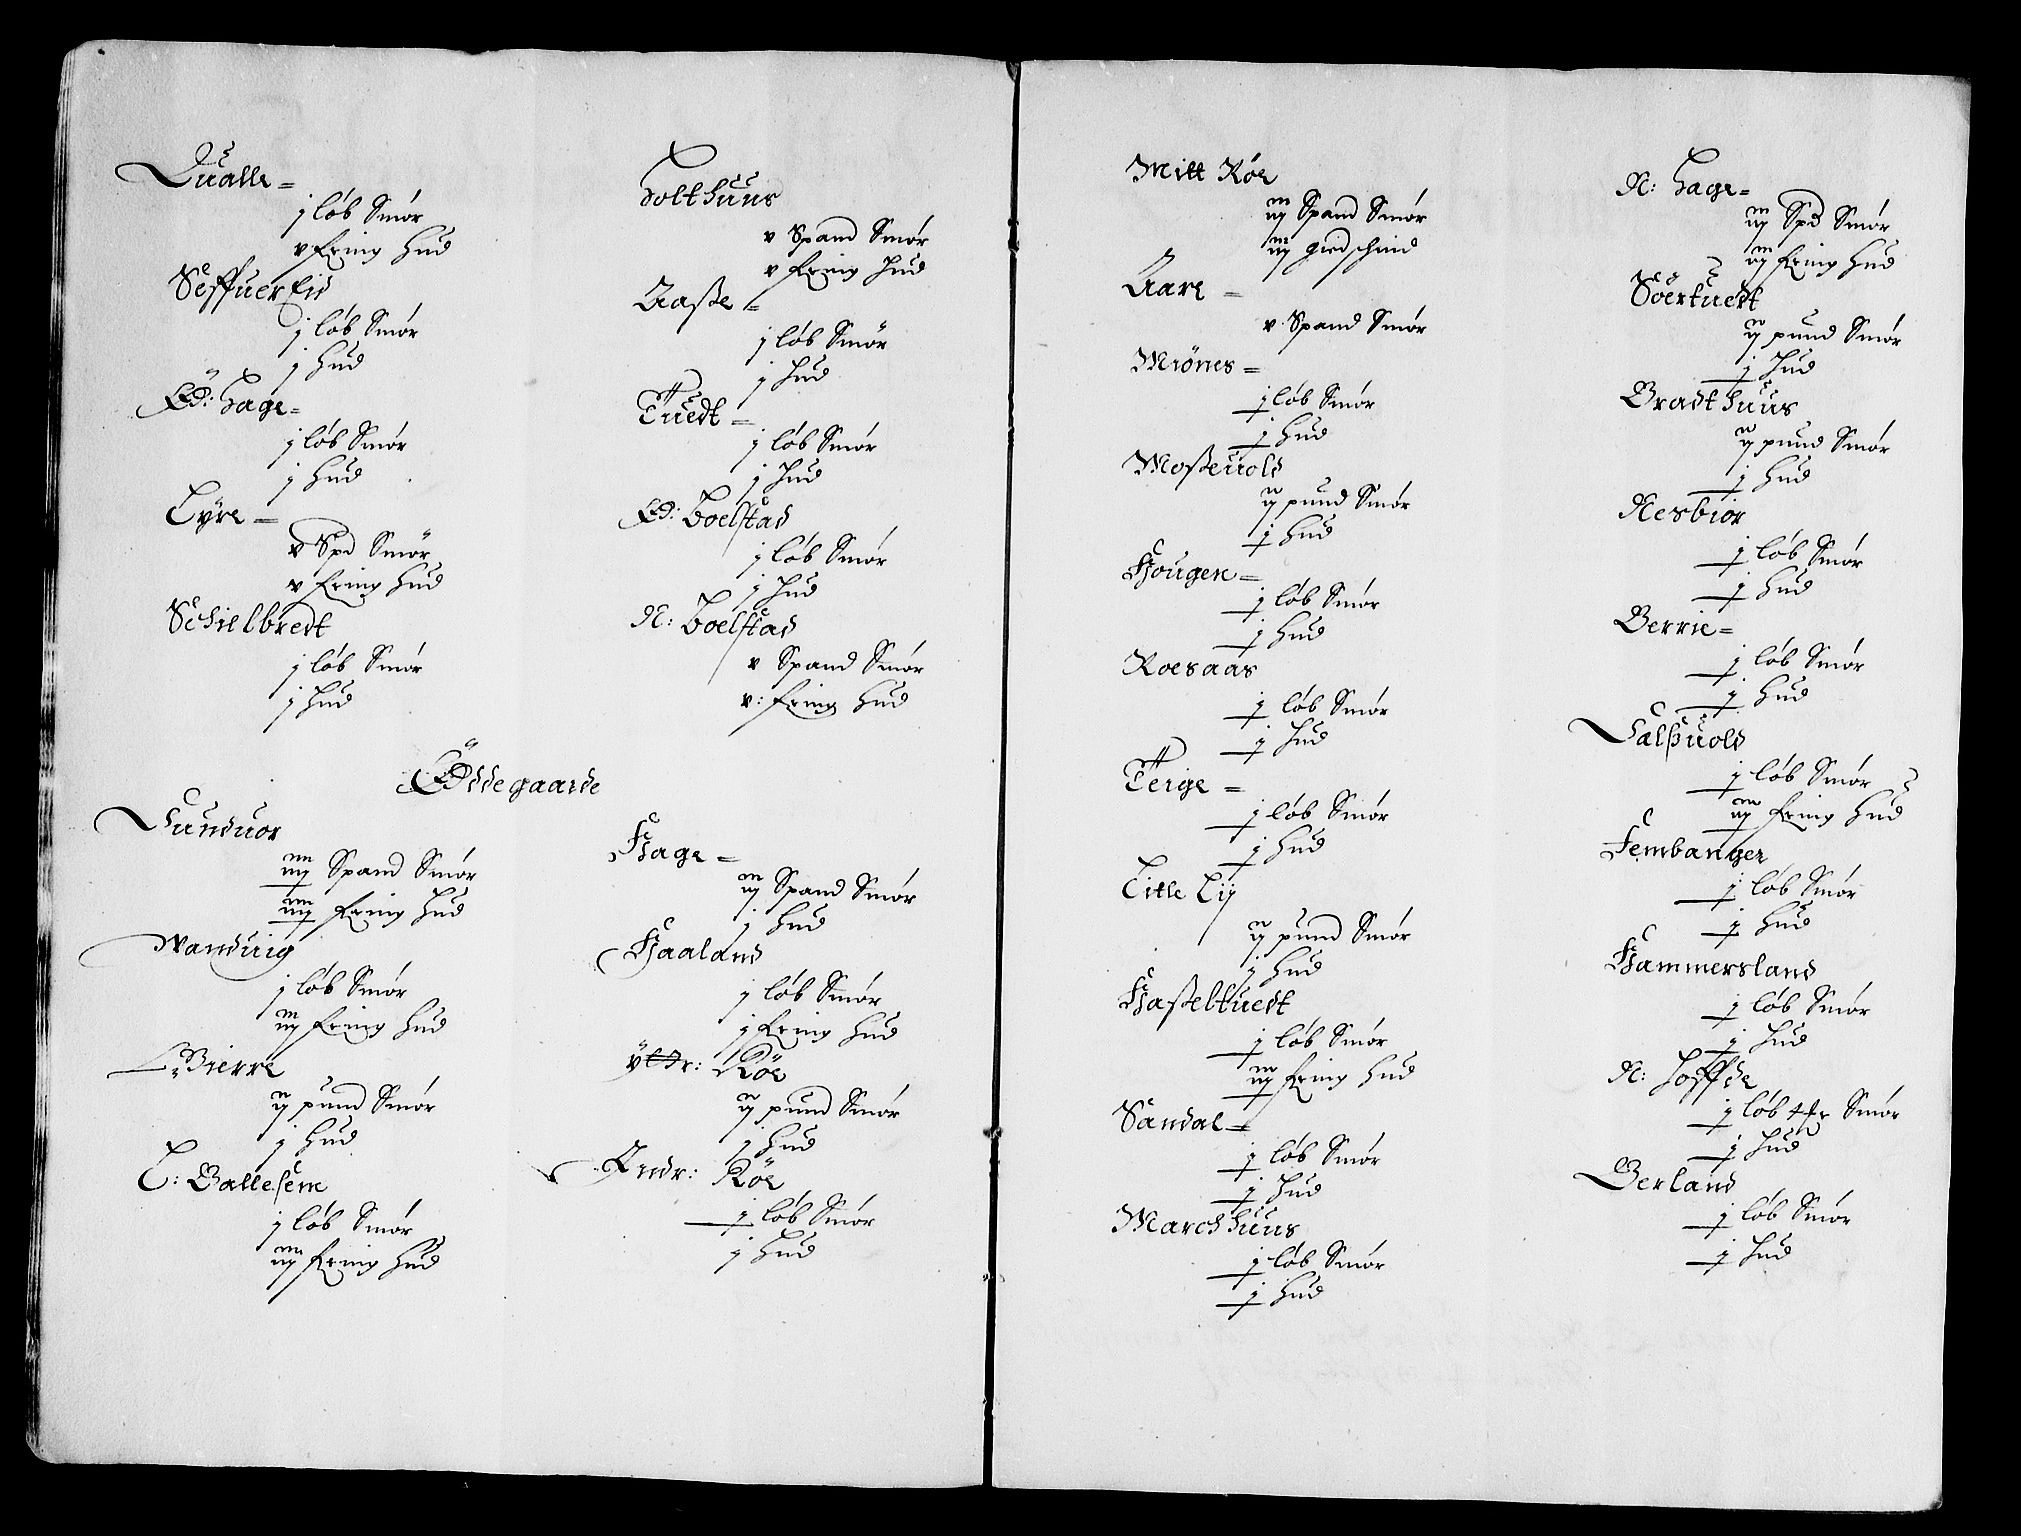 Qualle=
j løb Smør
v fring hud
Seffuer Eid
j løb Smør
j hud
Ød: hage=
j løb Smør
j hud
Lyre=
v Spd Smør
v fring hud
Schielbredt
j løb Smør
j hud
holthuus
v Spand Smør
v fring hud
Aasse=
j løb Smør
j hud
Tuedt=
j løb Smør
j hud
Ød: boelstad
j løb Smør
j hud
N: boelstad
v Spand Smør
v: fring hud
Øddegaarde
Lunduor
iiij Spand Smør
iiij fring hud
Wanduig
j løb Smør
iij fring hud
Bierre
ij pund Smør
j hud
L: Ballesem
j løb Smør
iiij fring hud
Hage=
iij Spand Smør
j hud
Haaland
j løb Smør
j fring hud
ytt&r: Røe
ij pund Smør
j hud
Indr: Røe
j løb Smør
j hud
Mitt Røe
iij Spand Smør
iij giedschind
Aare=
v Spand Smør
Miønes=
j løb Smør
j hud
Mosseuold
ij pund Smør
j hud
Hougen=
j løb Smør
j hud
Roesaas
j løb Smør
j hud
Terige=
j løb Smør
j hud
Litle Lij
ij pund Smør
j hud
Hasseltuedt
j løb Smør
iij fring hud
Sandal=
j løb Smør
j hud
Marchhuus
j løb Smør
j hud
N: hage=
iij Spd Smør
iij fring hud
Sörtuedt
ij pund Smør
j hud
Bradthuus
ij pund Smør
j hud
Nesbiør
j løb Smør
j hud
Berrie=
j løb Smør
j hud
Halsuold
j løb Smør
iij fring hud
Fembanger
j løb Smør
j hud
Hammersland
j løb Smør
j hud
N: hoffde
j løb Smør
j hud
Berland
j løb Smør
j hud